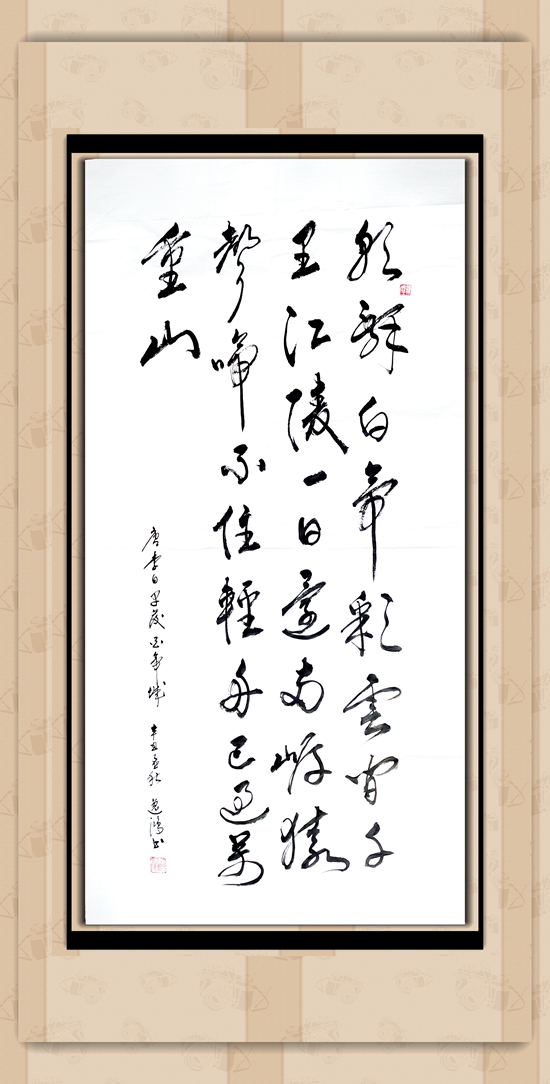 朝辭白帝彩雲間千
里江陵一日還兩岸猿
聲啼不住輕舟已過萬
重山
唐李白早發白帝城 辛丑秋 鴻書